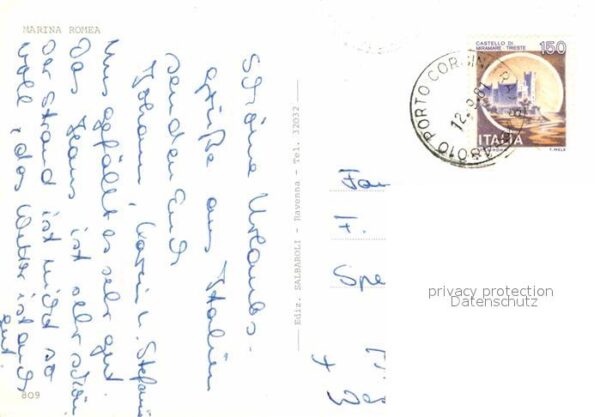 MARINA ROMEA
Schöne Urlaubs-
grüße aus Italien
senden Euch
Johann, Karin u. Stefanie
Uns gefällt es sehr gut.
Das Haus ist sehr schön
der Strand ist nicht so
voll, das Wetter ist auch
gut.
809
Ediz. SALBAROLI - Ravenna - Tel. 32032
CASTELLO DI
MIRAMARE TRIESTE
150
ITALIA
48010 PORTO CORSINI
12.9.81
Fam
F.
Spe
privacy protection
Datenschutz